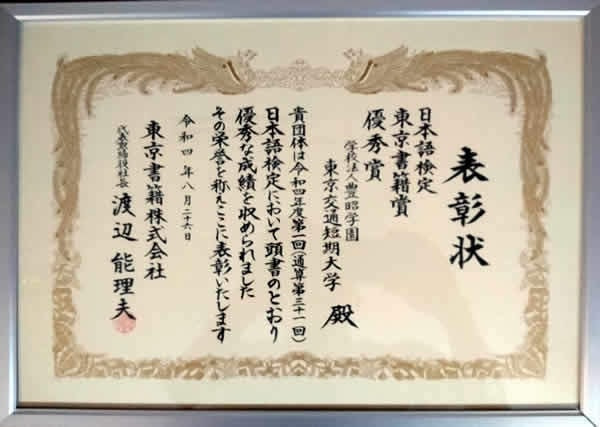 表彰状
日本語検定
東京書籍賞
優秀賞
学校法人豊昭学園
東京交通短期大学 殿
貴団体は令和四年度第一回(通算第三十一回)
日本語検定において頭書のとおり
優秀な成績を収められました
その栄誉を称えここに表彰いたします
令和四年八月二十六日
東京書籍株式会社
代表取締役社長 渡辺能理夫